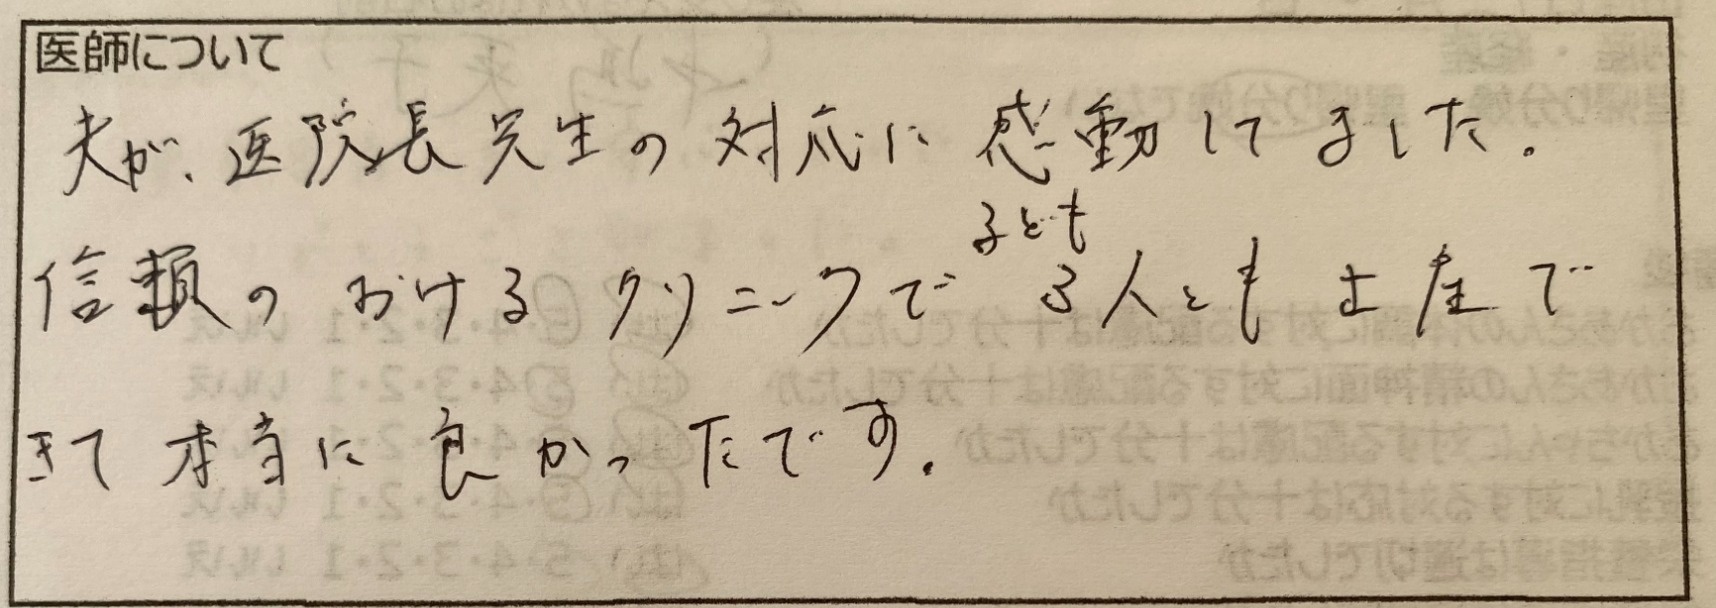 医師について
夫が、医院長先生の対応に感動してました。
子ども
信頼のおけるクリニックで3人とも出産で
きて本当に良かったです。